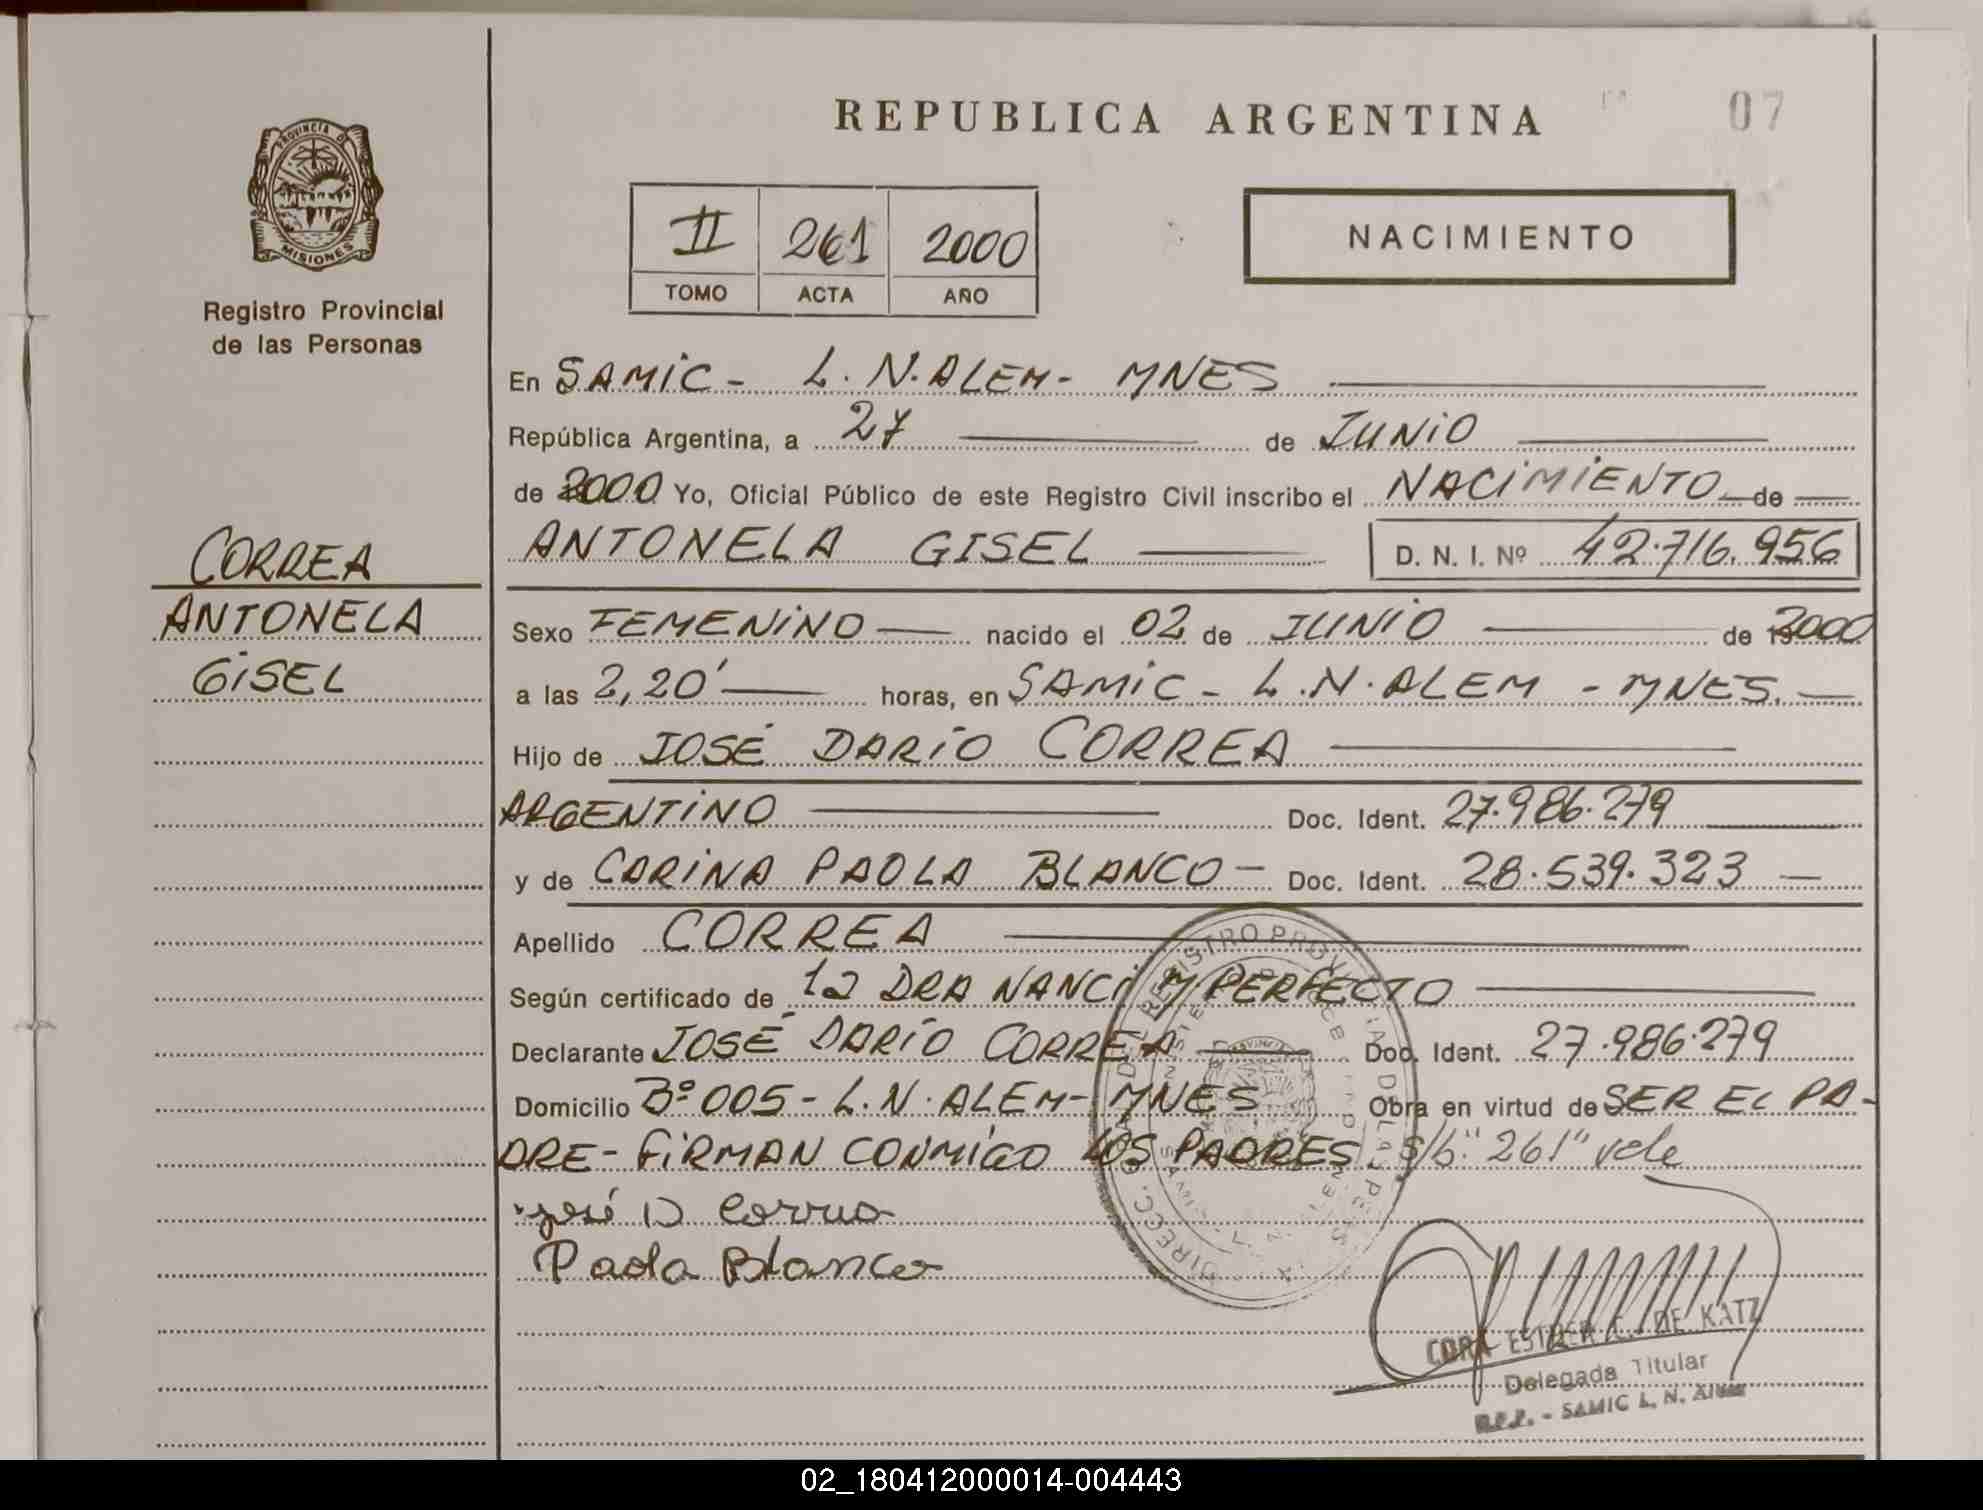 REPUBLICA ARGENTINA
07
PROVINCIA DE
MISIONES
Registro Provincial
de las Personas
II 261 2000
TOMO ACTA AÑO
NACIMIENTO
En SAMIC - L. N. ALEM - MNES
República Argentina, a 27 de JUNIO
de 2000 Yo, Oficial Público de este Registro Civil inscribo el NACIMIENTO de
ANTONELA GISEL D. N. I. Nº 42.716.956
CORREA
ANTONELA
GISEL
Sexo FEMENINO nacido el 02 de JUNIO de 2000
a las 2,20' horas, en SAMIC - L. N. ALEM - MNES.
Hijo de JOSÉ DARÍO CORREA
ARGENTINO Doc. Ident. 27.986.279
y de CARINA PAOLA BLANCO - Doc. Ident. 28.539.323
Apellido CORREA
Según certificado de la DRA NANCI M PERFECTO
Declarante JOSÉ DARÍO CORREA Doc. Ident. 27.986.279
Domicilio Bº 005 - L. N. ALEM - MNES Obra en virtud de SER EL PA-
DRE - FIRMAN CONMIGO LOS PADRES S/b "261" vale
José D Correa
Paola Blanco
CORA ESTHER C. DE KATZ
Delegada Titular
R.P.P. - SAMIC L. N. Alem
02_180412000014-004443